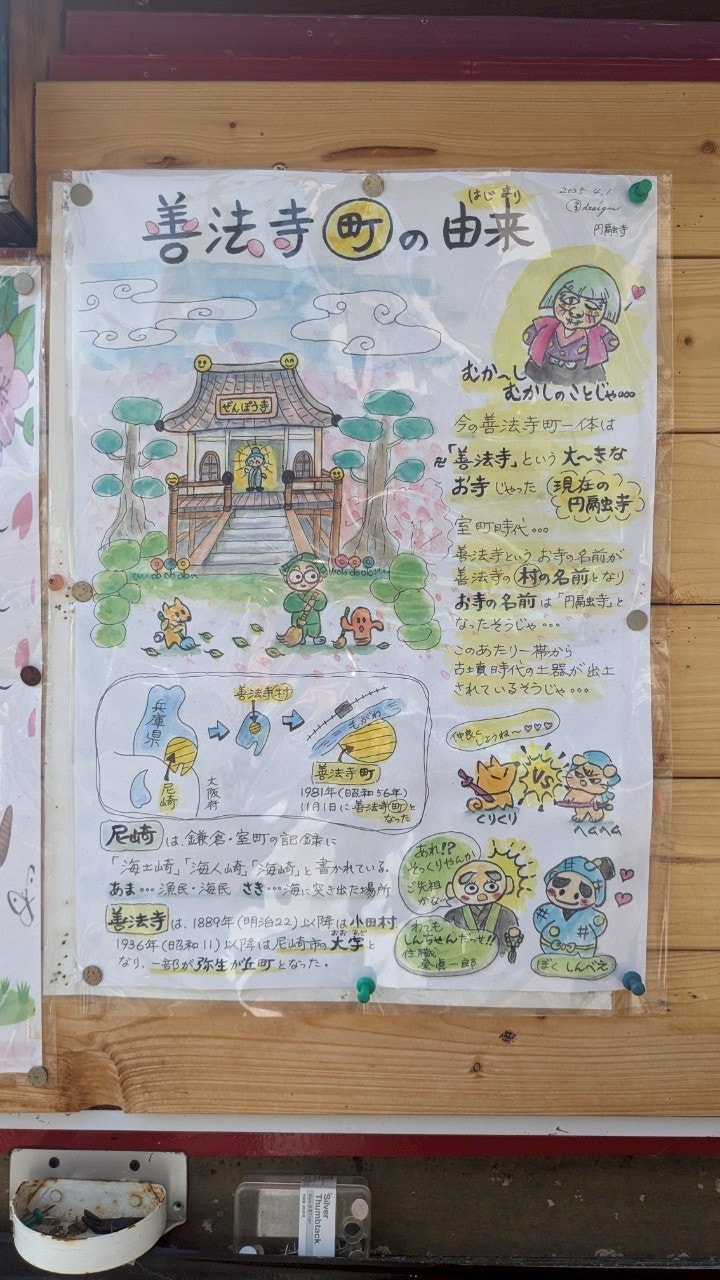 善法寺町の由来
はじまり
2025 4.1
design
円融寺
ぜんぽう寺
むか〜し
むかしのことじゃ…
今の善法寺町一体は
卍「善法寺」という大〜きな
お寺じゃった 現在の
円融寺
室町時代…
善法寺というお寺の名前が
善法寺の村の名前となり
お寺の名前は「円融寺」と
なったそうじゃ…
このあたり一帯から
古墳時代の土器が出土
されているそうじゃ…
兵庫県
尼崎
大阪府
善法寺村
もがわ
善法寺町
1981年(昭和56年)
11月1日に善法寺(町)と
なった
仲良く
しようね〜♡♡♡
VS
くりくり
へムへム
尼崎は、鎌倉・室町の記録に
「海士崎」「海人崎」「海崎」と書かれている。
あま…漁民・海民 さき…海に突き出た場所
善法寺は、1889年(明治22)以降は小田村、
1936年(昭和11)以降は尼崎市の大字と
おおあざ
なり、一部が弥生が丘町となった。
あれ!?
そっくりやんか
ご先祖
かな〜
わても
しんちゃんだっせ!!
住職
ぼくしんべヱ
Silver
Thumbtack